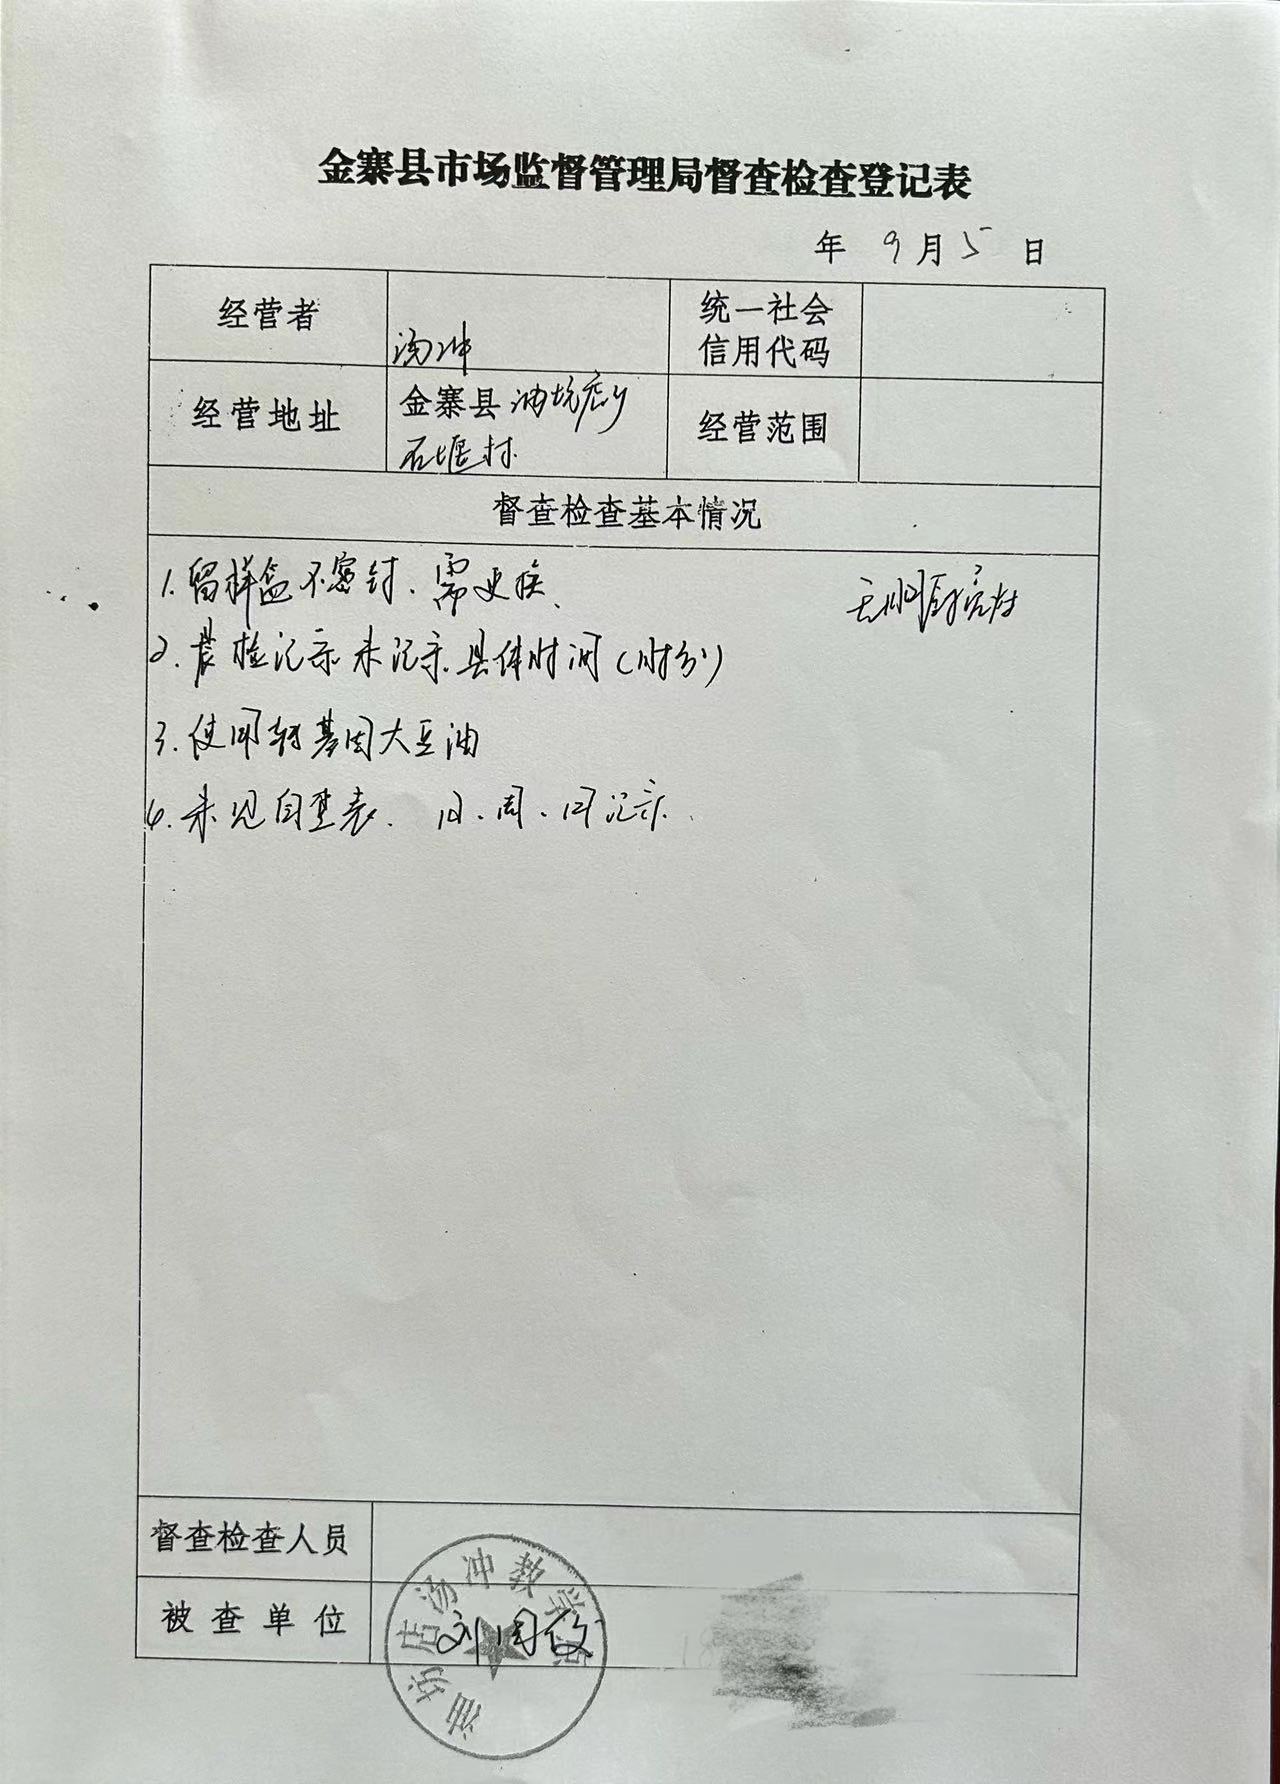 金寨县市场监督管理局督查检查登记表
年 9月5日
经营者 汤冲 统一社会信用代码
经营地址 金寨县油坊店乡 经营范围
石堰村
督查检查基本情况
1.留样盒不密封、需更换、 无明厨亮灶
2.晨检记录未记录具体时间(时分)
3.使用转基因大豆油
4.未见自查表、日、周、月记录、
督查检查人员
被查单位 刘同
油坊店汤冲教学点